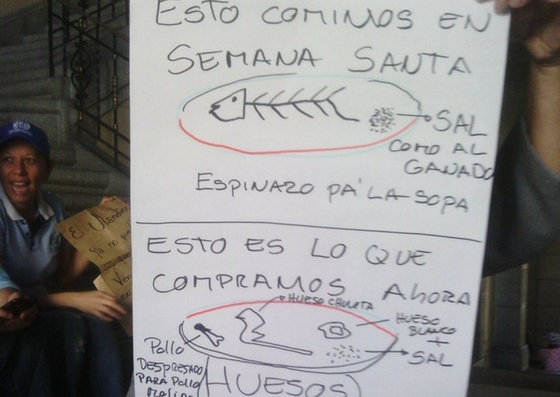 ESTO COMIMOS EN
SEMANA SANTA
SAL
COMO AL
GANADO
ESPINAZO PA' LA SOPA
ESTO ES LO QUE
COMPRAMOS AHORA
HUESO CHULETA
HUESO
BLANCO
+
SAL
Pollo
DESPRESADO
PARA POLLO
HUESOS
El
Ya no